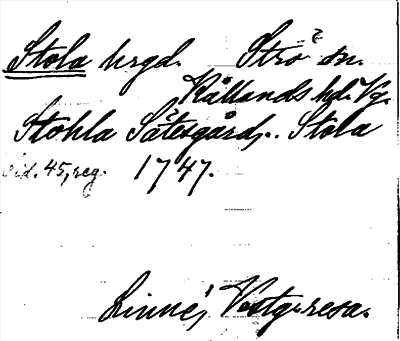 Stola hrgd. Strö sn.
Kållands hd. Vg.
Stohla Säteegård, .. Stola
sid. 45, reg. 1747.
Linné, Vestg.resa.